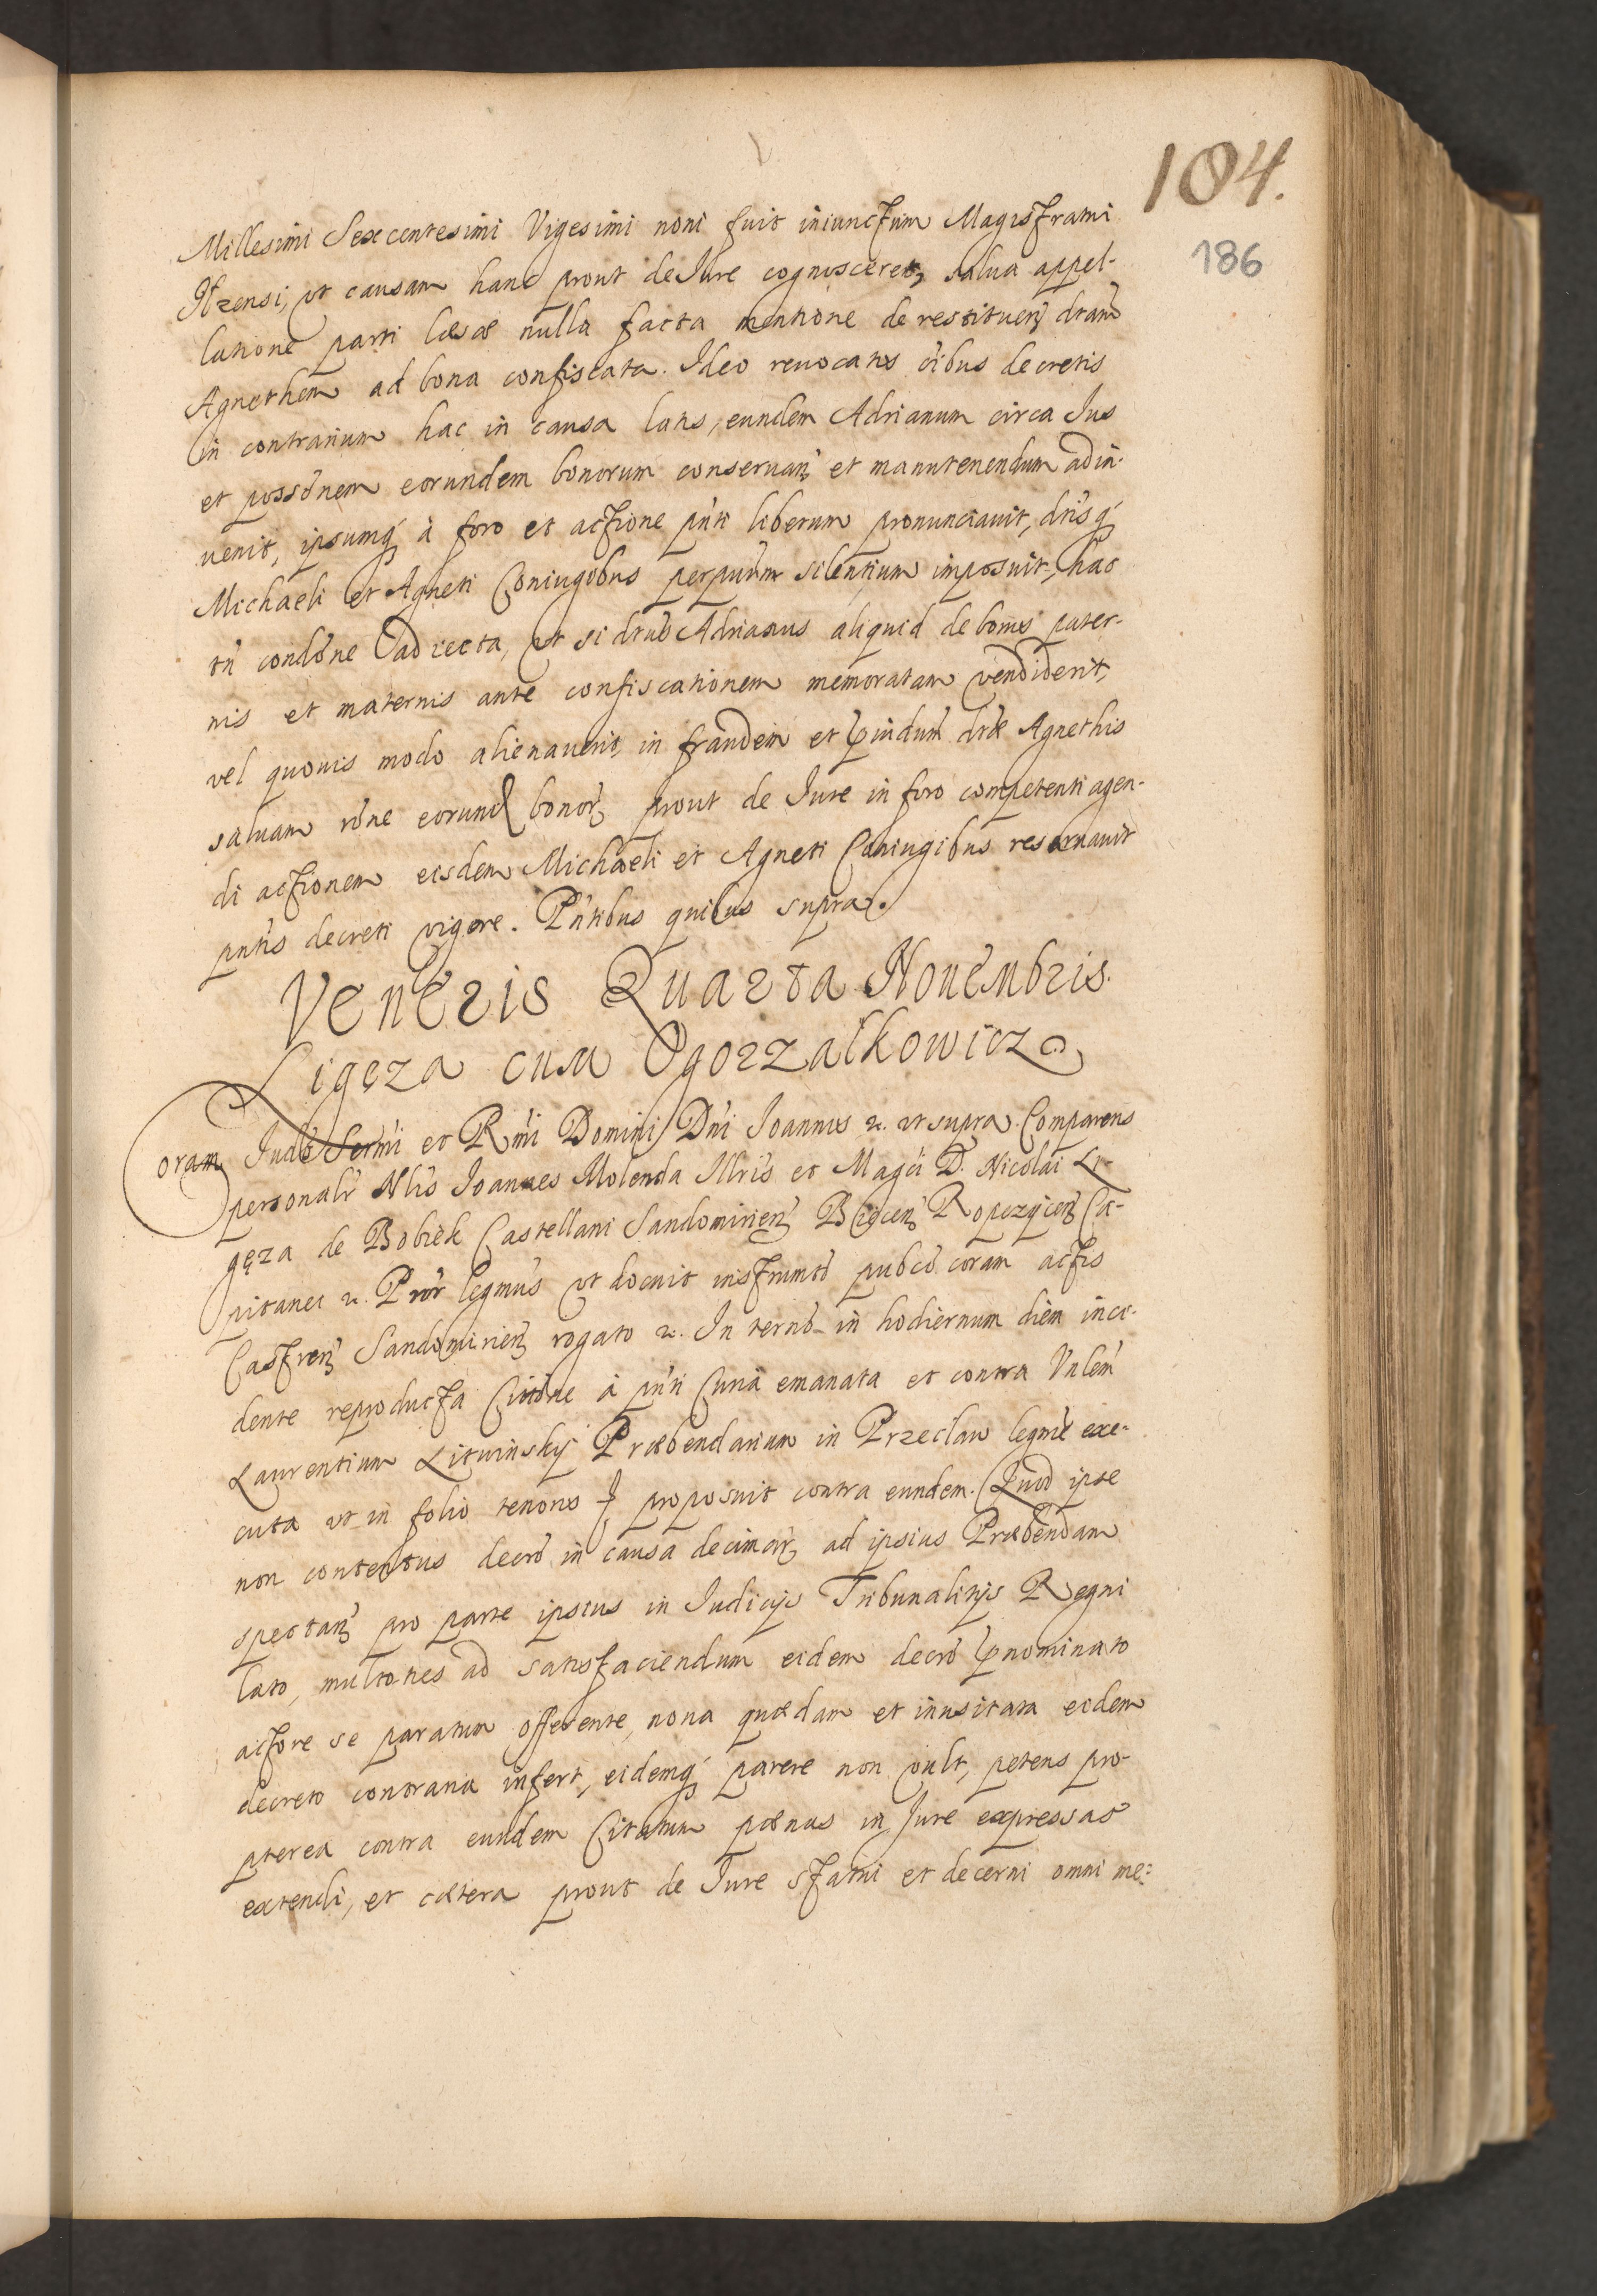 104.
186
Millesimi Sexcentesimi Vigesimi noni fuit iniunctum Magistratui
Ilzensi, vt causam hanc prout de Iure cognosceret, salua appel-
latione parti læsæ nulla facta mentione de restituen dtam
Agnethem ad bona confiscata. Ideo reuocatis oibus decretis
in contrarium hac in causa latis, eundem Adrianum circa Ius
et possonem eorundem bonorum conseruan et manutenendum adin-
uenit, ipsumq à foro et actione pnti liberum pronunciauit, dtisq
Michaeli et Agneti Coniugibus perpuum silentium imposuit, hac
tn condone adiecta, vt si dtus Adrianus aliquid de bonis pater-
nis et maternis ante confiscationem memoratam vendiderit,
vel quouis modo alienauerit, in fraudem et piudum dtæ Agnethis
saluam rone eorund bonor prout de Iure in foro competenti agen-
di actionem eisdem Michaeli et Agneti Coniugibus reseruauit
pntis decreti vigore. Pntibus quibus supra.
Veneris Quarta Nouembris.
Ligęza cum Ogorzalkowicz
Coram Iudo Sermi et Rmi Domini Dni Ioannis &. vt supra. Comparens
personalr Nlis Ioannes Molenda Illris et Magci D. Nicolai Li-
gęza de Bobrek Castellani Sandomirien Biecen Ropczycen Ca-
pitanei &. Pror legmus vt docuit instrumto pubco coram actis
Castren Sandomirien rogato &. In termo in hodiernum diem inci-
dente reproducta Citone à pnti Curia emanata et contra Vnlem
Laurentium Litwinsky Præbendarium in Przeclaw legme exe-
cuta vt in folio tenoris proposuit contra eundem. Quod ipse
non contentus decro in causa decimar ad ipsius Præbendam
spectan pro parte ipsius in Iudicijs Tribunalitijs Regni
lato, multoties ad satisfaciendum eidem decro pnominato
actore se paratum offerente, noua quædam et inusitata eidem
decreto contraria infert, eidemq parere non vult, petens pro-
pterea contra eundem Citatum pœnas in Iure expressas
extendi, et cætera prout de Iure statui et decerni omni me: